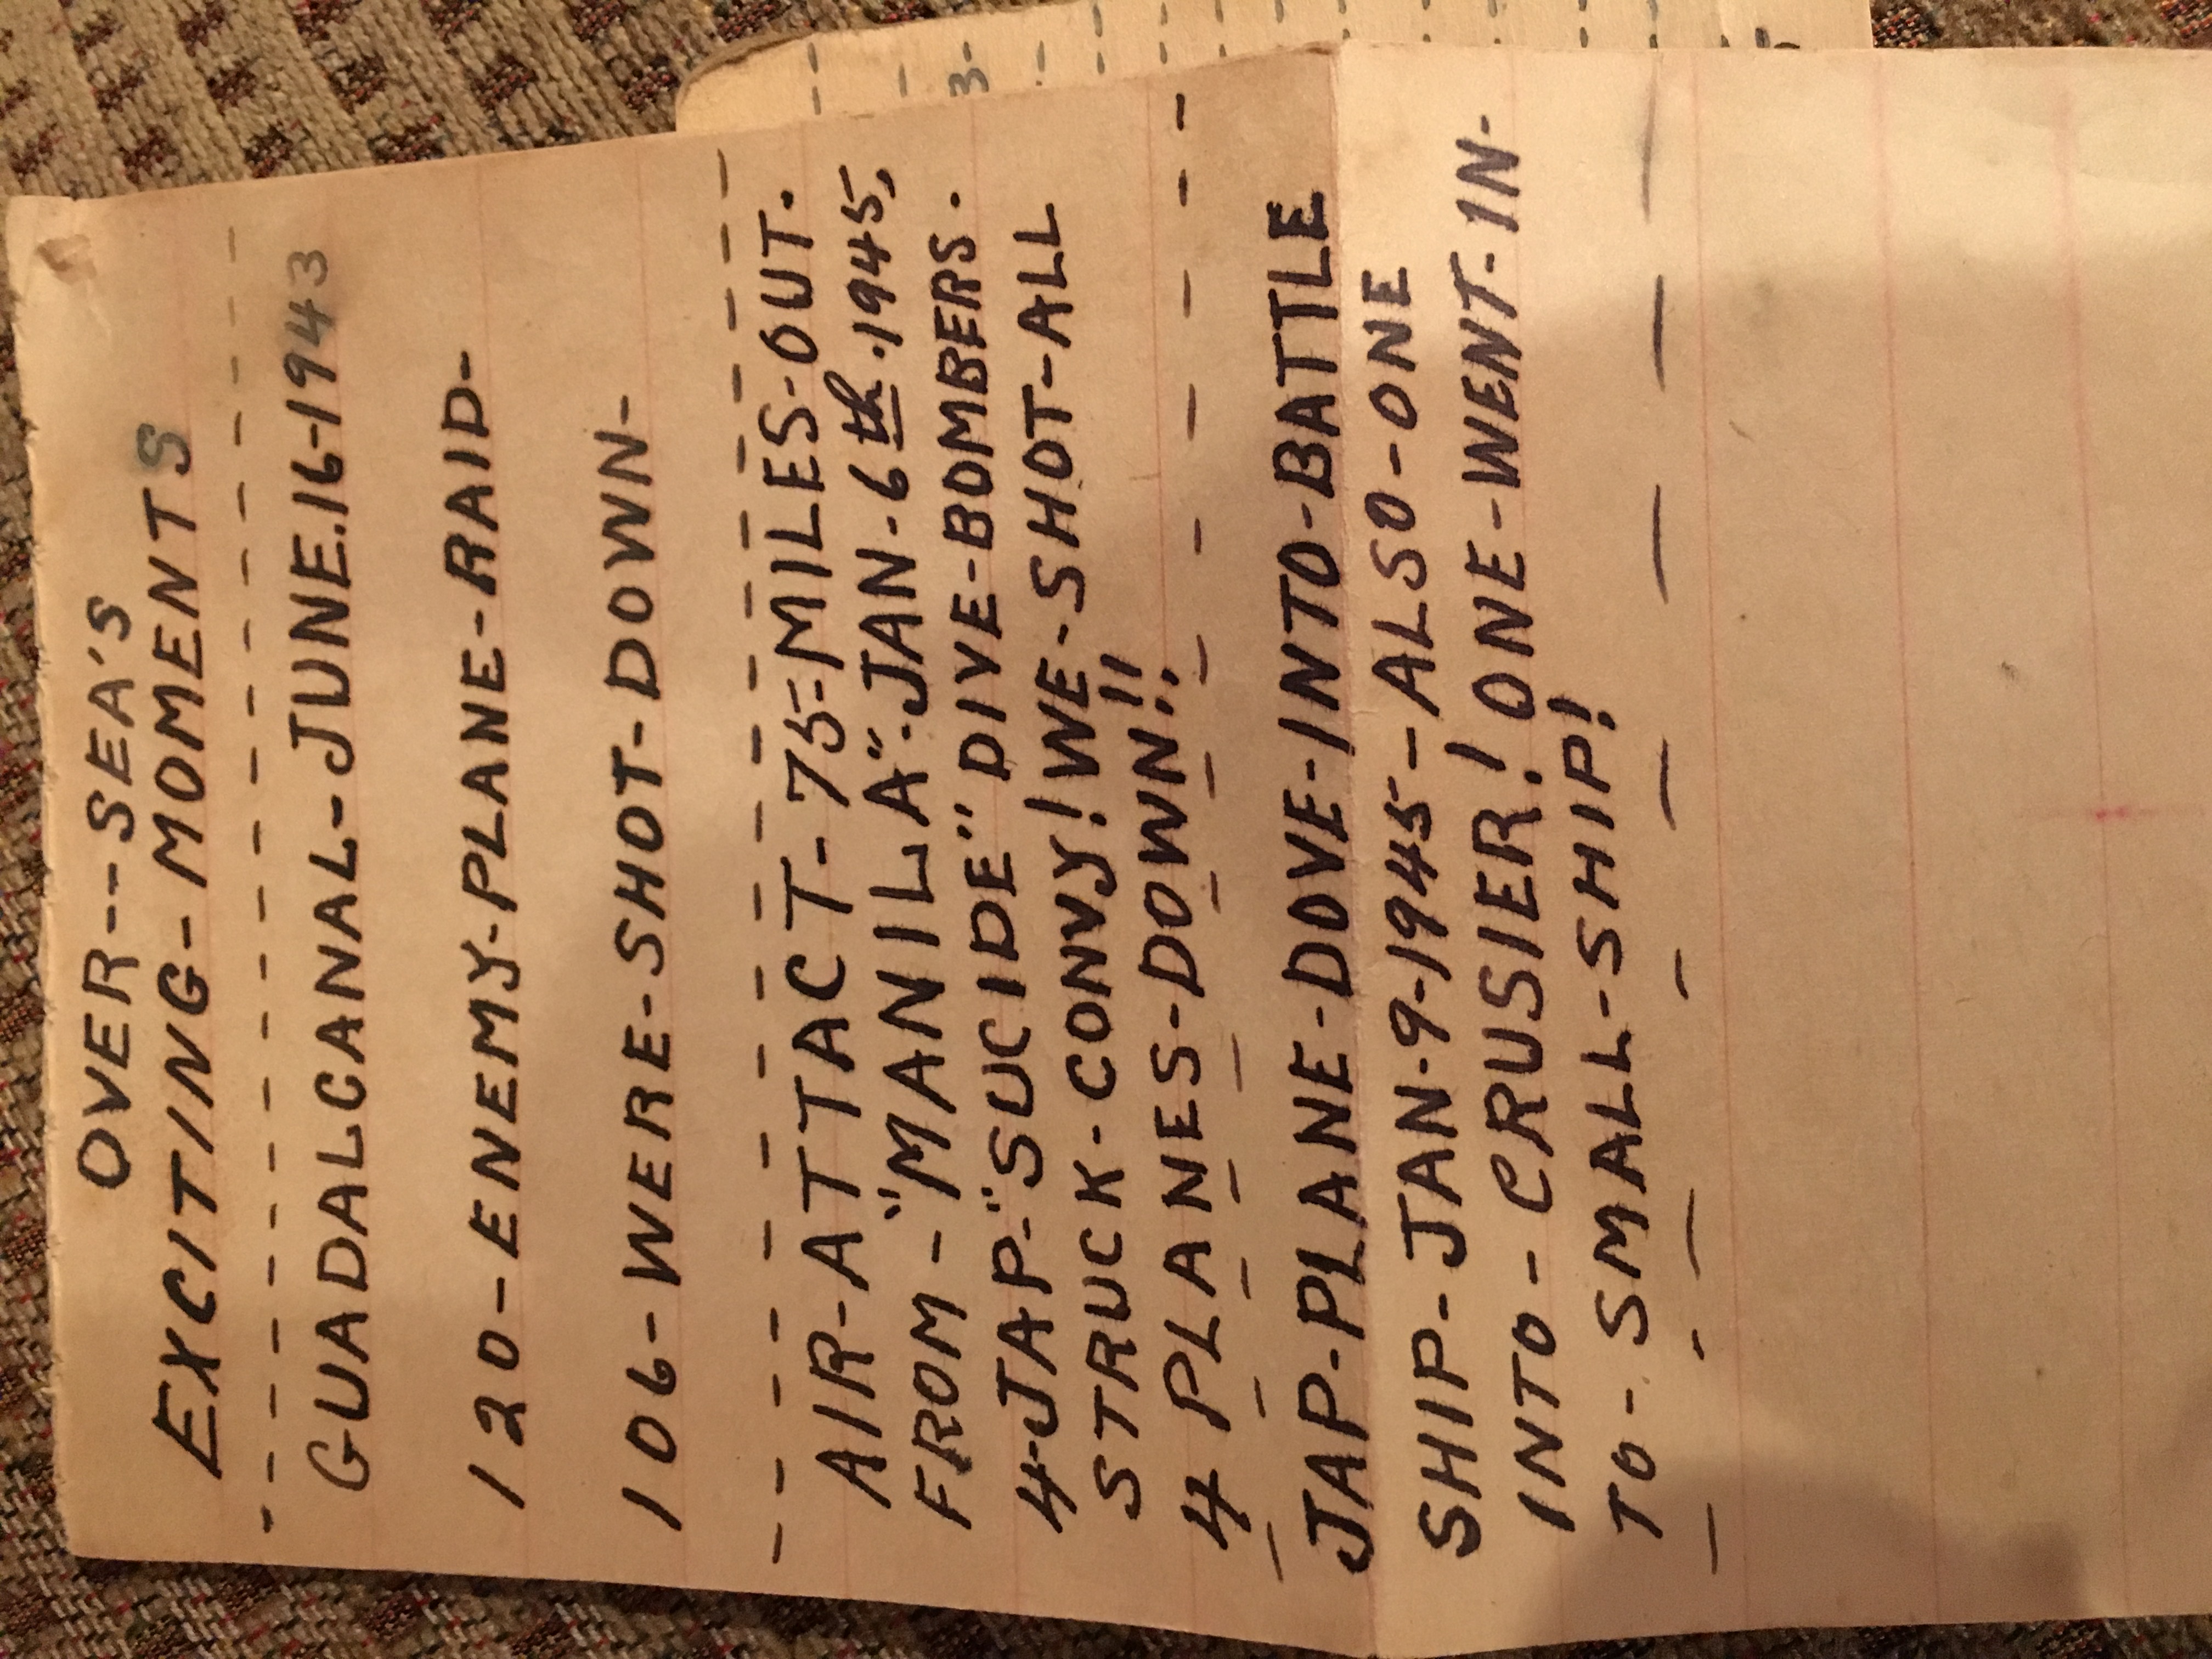 OVER--SEA'S
EXCITING-MOMENTS
GUADALCANAL-JUNE.16-1943
120-ENEMY-PLANE-RAID-
106-WERE-SHOT-DOWN-
AIR-ATTACT-75-MILES-OUT.
FROM-"MANILA"-JAN-6th.1945,
4-JAP-"SUCIDE" DIVE-BOMBERS.
STRUCK-CONVY! WE-SHOT-ALL
4 PLANES-DOWN!!
JAP-PLANE-DOVE-INTO-BATTLE
SHIP-JAN-9-1945-ALSO-ONE
INTO-CRUSIER! ONE-WENT-IN-
TO-SMALL-SHIP!
3-